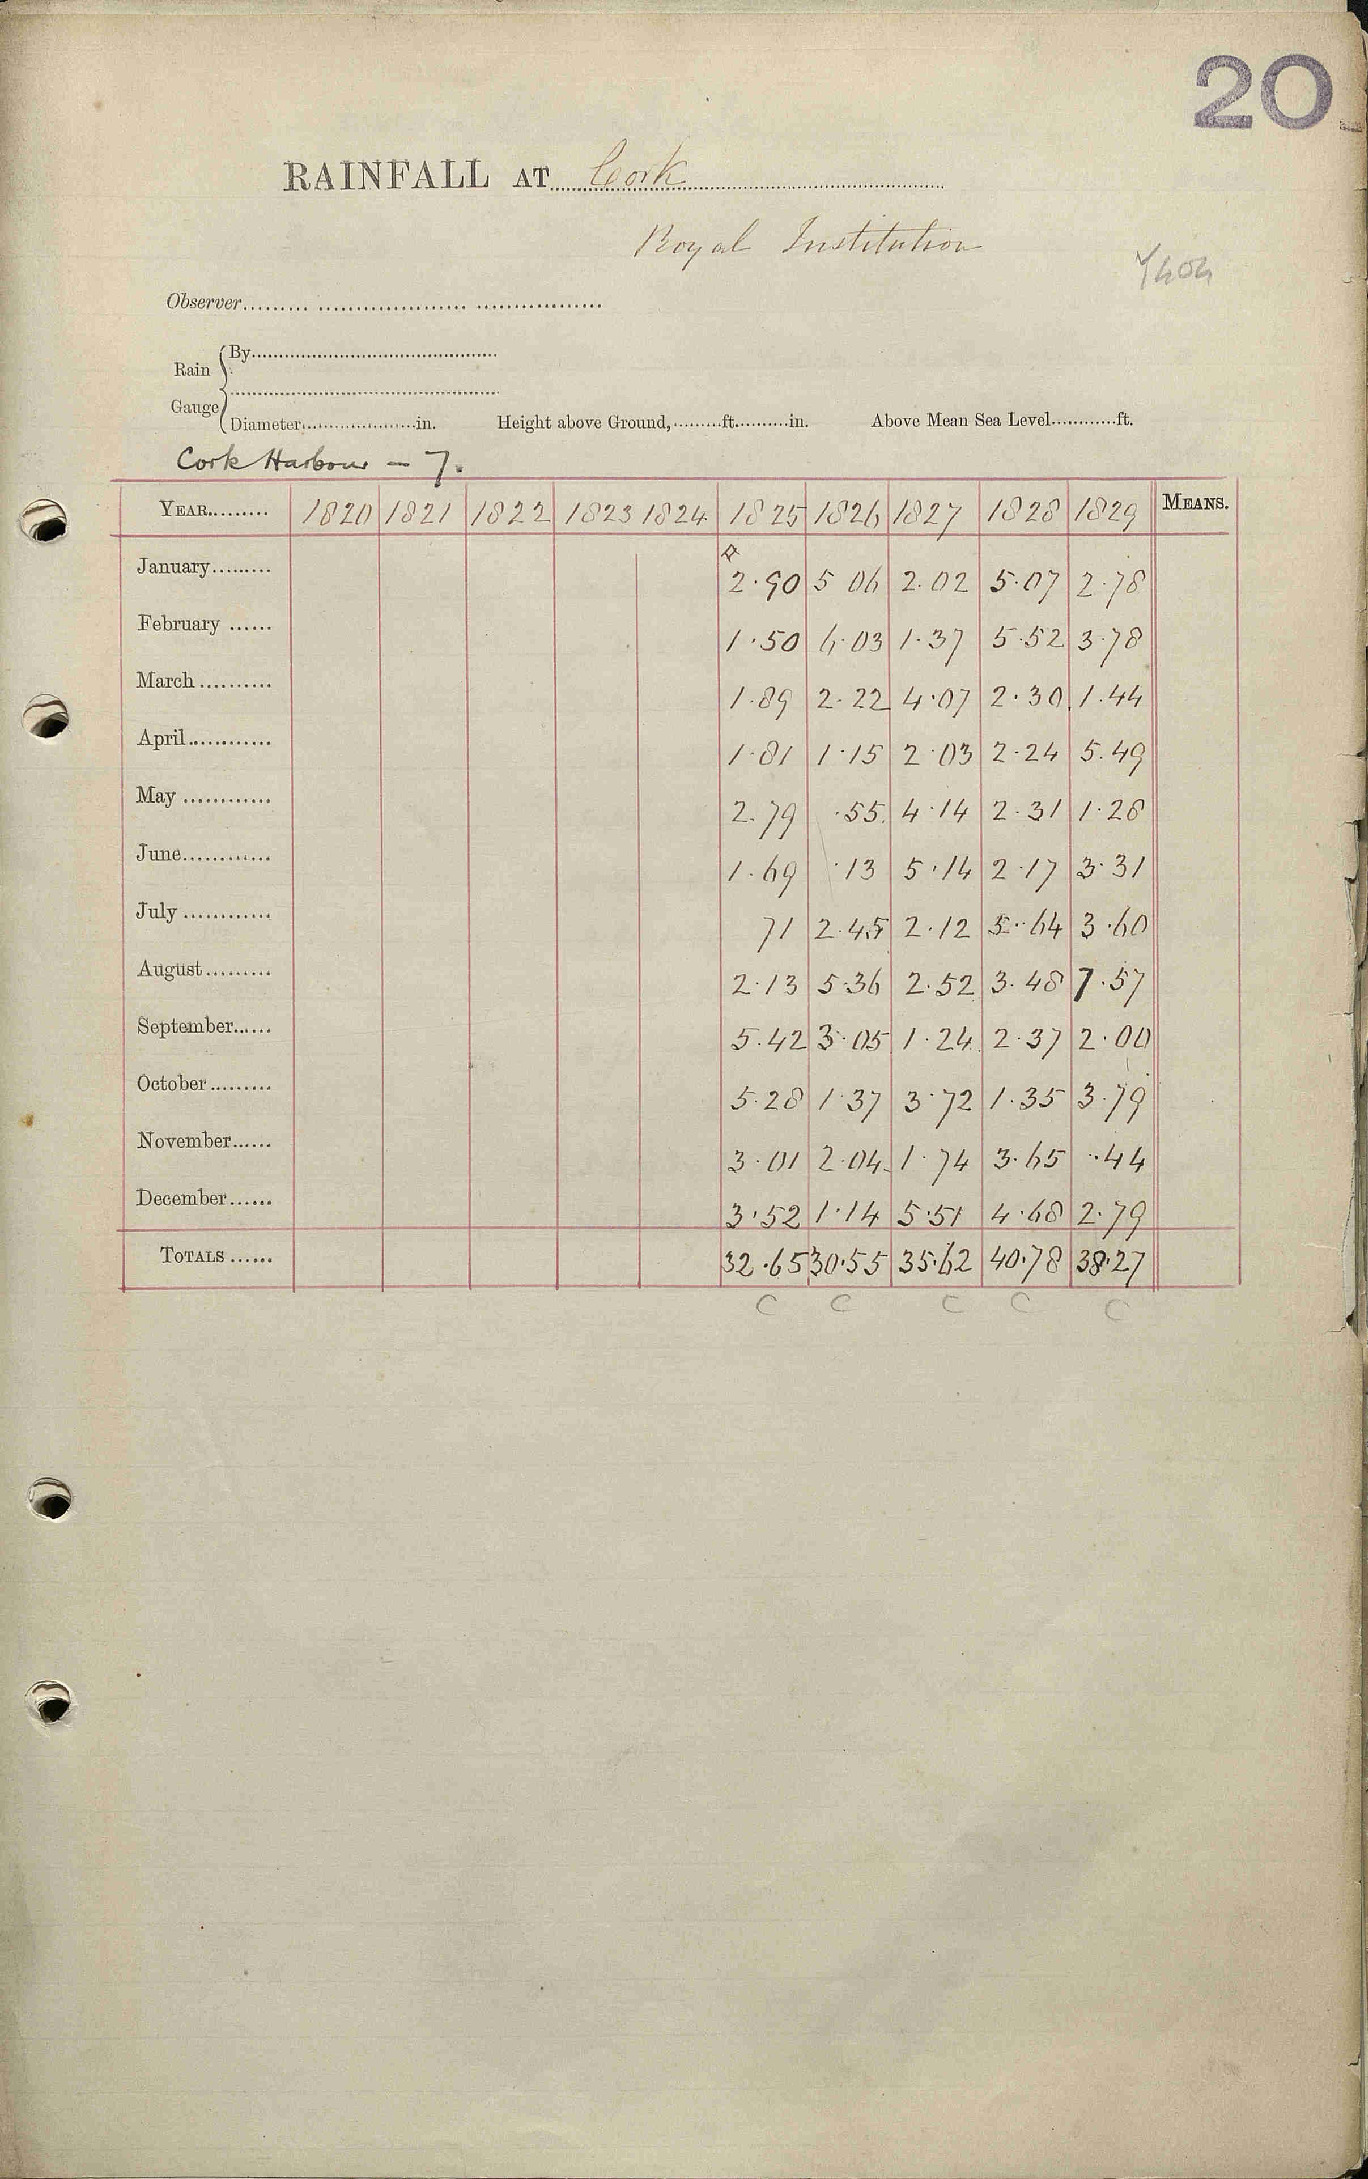 20
RAINFALL AT Cork
Royal Institution
Observer
By
Rain
Gauge
Diameter in. Height above Ground, ft. in. Above Mean Sea Level ft.
Cork Harbour - 7.
YEAR 1820 1821 1822 1823 1824 1825 1826 1827 1828 1829 MEANS.
January 2.90 5 06 2.02 5.07 2.78
February 1.50 6.03 1.37 5.52 3.78
March 1.89 2.22 4.07 2.30 1.44
April 1.81 1.15 2.03 2.24 5.49
May 2.79 .55 4.14 2.31 1.28
June 1.69 .13 5.14 2.17 3.31
July 71 2.45 2.12 5.64 3.60
August 2.13 5.36 2.52 3.48 7.57
September 5.42 3.05 1.24 2.37 2.00
October 5.28 1.37 3.72 1.35 3.79
November 3.01 2.04 1.74 3.65 .44
December 3.52 1.14 5.51 4.68 2.79
TOTALS 32.65 30.55 35.62 40.78 38.27
C C C C C